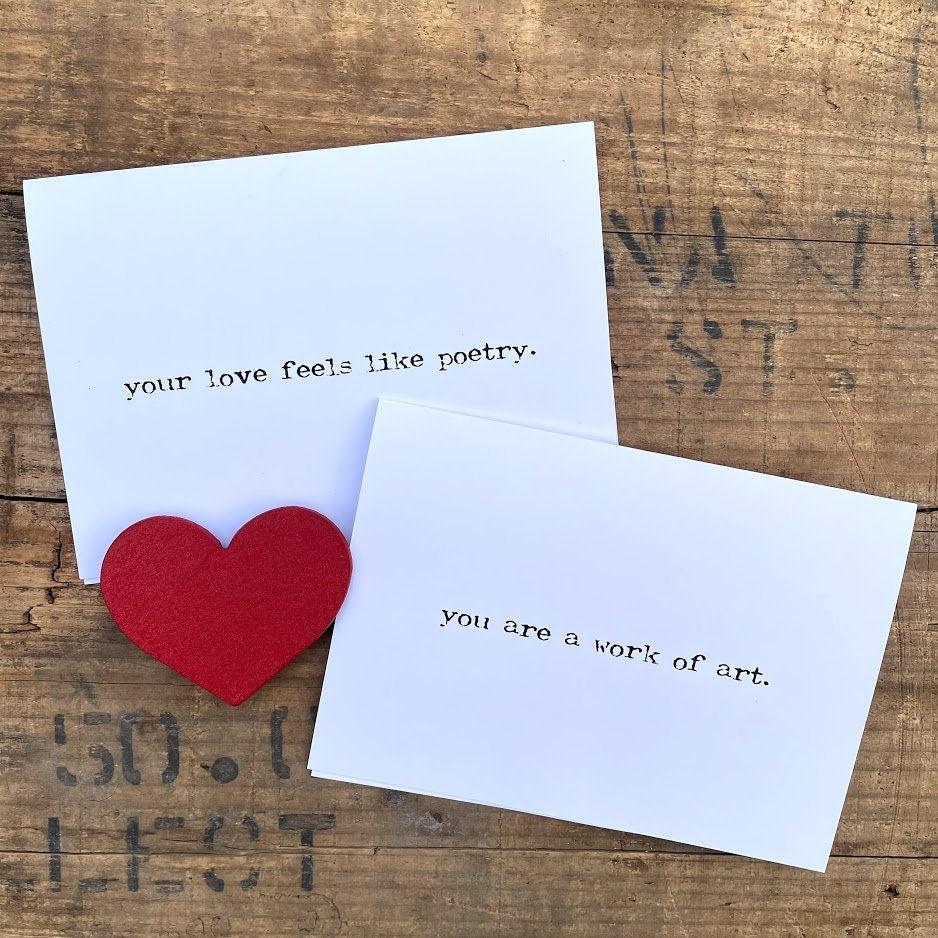 your love feels like poetry.
you are a work of art.
ST.
50.0
LECT